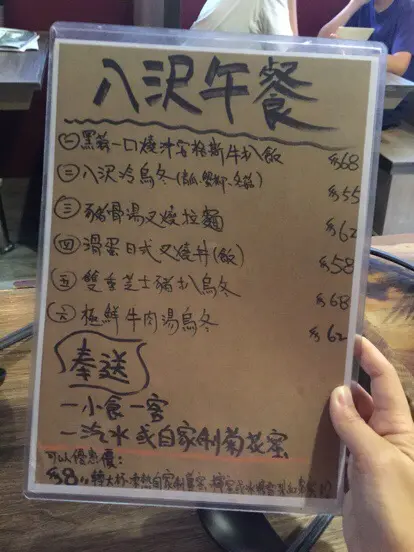 八沢午餐
㊀黑蒜一口燒汁安格斯牛扒飯 $68
㊁八沢冷烏冬 $55
㊂豬骨湯叉燒拉麵 $62
㊃滑蛋日式叉燒丼(飯) $58
㊄雙重芝士豬扒烏冬 $68
㊅極鮮牛肉湯烏冬 $62
奉送
一小食一客
一汽水或自家制菊花蜜
可以優惠價:
$8